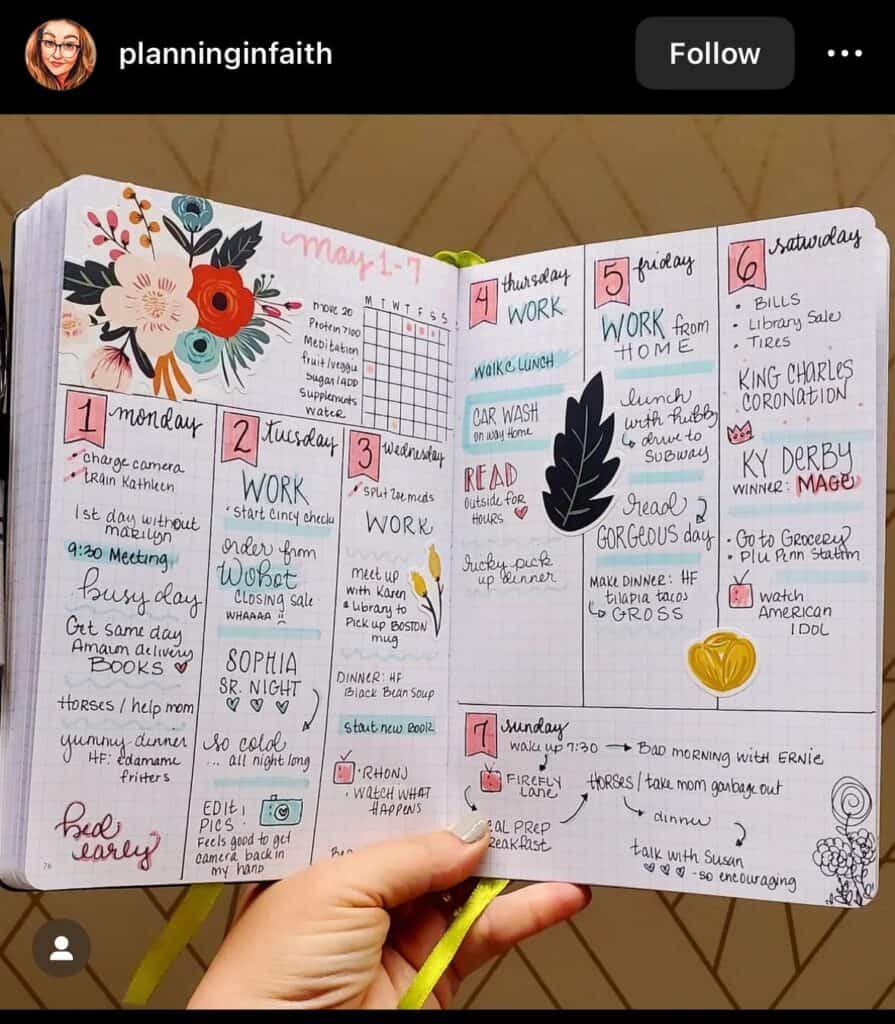 planninginfaith
Follow
May 1-7
M T W T F S S
move 20
Protein >100
Meditation
fruit/veggie
sugar/ADD
supplements
water
1 monday
charge camera
train Kathleen
1st day without
marilyn
9:30 Meeting
busy day
Get same day
Amazon delivery
BOOKS
Horses / help mom
yummy dinner
HF: edamame
fritters
bed
early
76
2 tuesday
WORK
• start cincy checks
order from
Wobot
CLOSING SALE
WHAAAA
SOPHIA
SR. NIGHT
so cold
... all night long
EDIT
PICS
Feels good to get
camera back in
my hand
3 wednesday
split ze meds
WORK
meet up
with Karen
@ Library to
Pick up BOSTON
mug
DINNER: HF
Black Bean Soup
start new BOOK
• RHONJ
• WATCH WHAT
HAPPENS
4 thursday
WORK
walk @ LUNCH
CAR WASH
on way home
READ
outside for
HOURS
rucky pick
up dinner
5 friday
WORK from
HOME
lunch
with hubby
drive to
SUBWAY
read
GORGEOUS day
MAKE DINNER: HF
tilapia tacos
GROSS
6 saturday
• BILLS
• Library Sale
• TIRES
KING CHARLES
CORONATION
KY DERBY
WINNER: MAGE
• Go to Grocery
• P/u Penn Station
watch
AMERICAN
IDOL
7 sunday
wake up 7:30 → Bad morning with ERNIE
FIREFLY
LANE
Horses / take mom garbage out
EAL PREP
reakfast
dinner
talk with Susan
- so encouraging